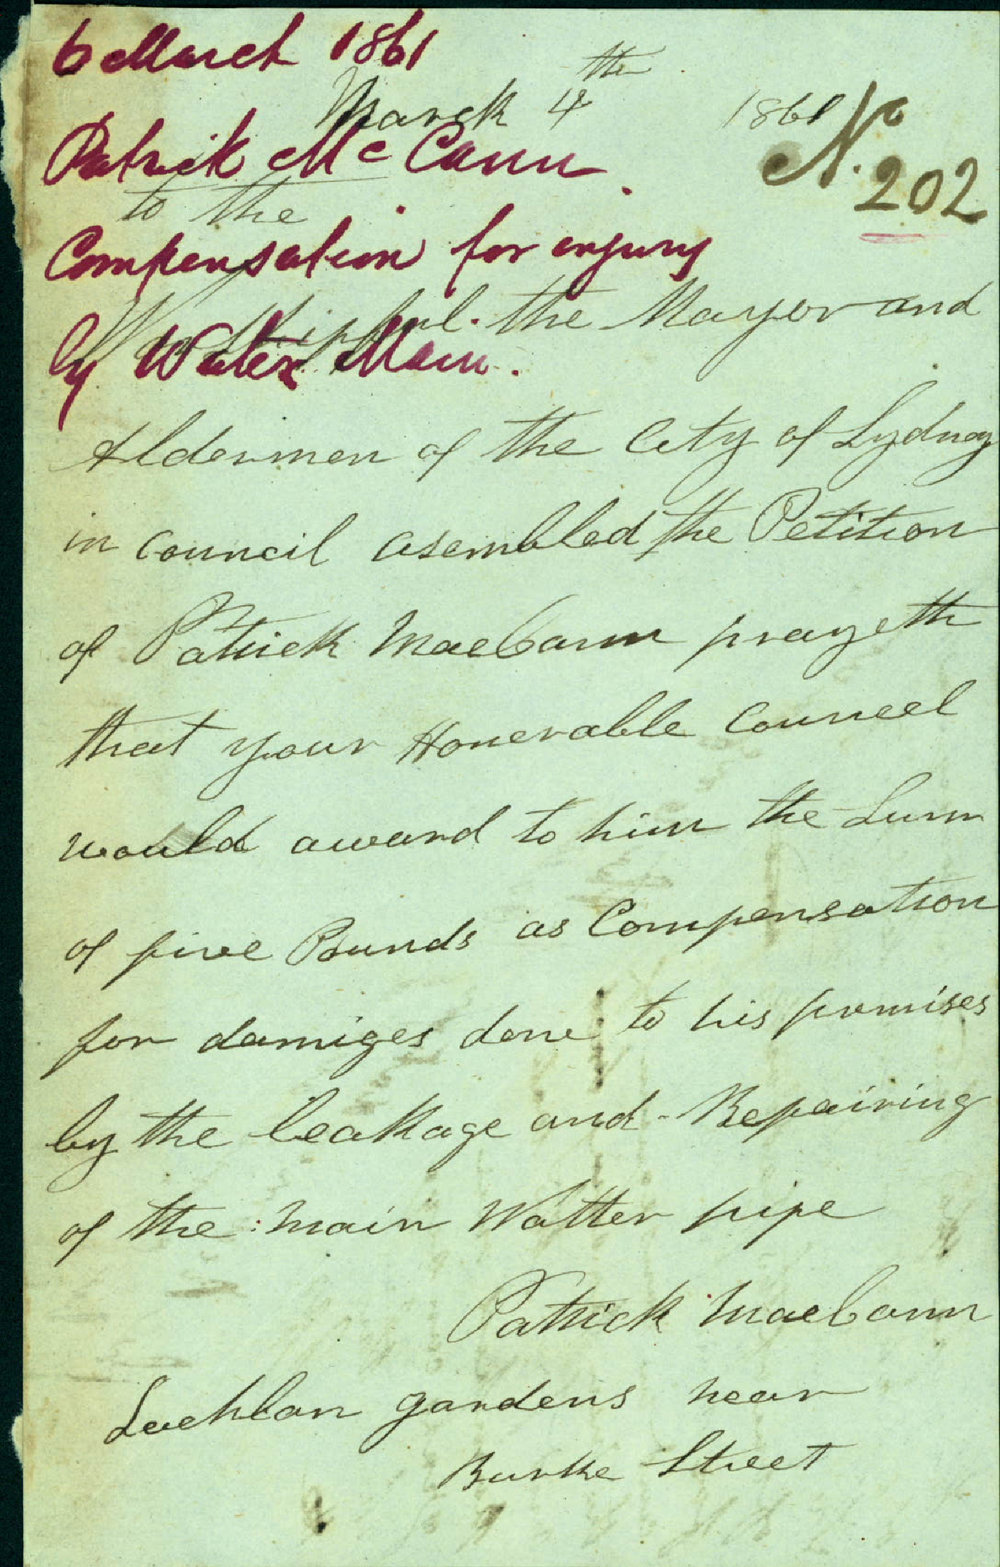 6 March 1861
March 4th 1861
No. 202
Patrick McCann
to the
Compensation for injury
Worshipful the Mayor and
by Water Main.
Aldermen of the City of Sydney
in council asembled the Petition
of Patrick MaeCann prayeth
that your Honerable Councel
would award to him the Sum
of five Punds as Compensation
for damiges done to his premises
by the leakage and Repairing
of the main Watter pipe
Patrick MaeCann
Lachlan gardens near
Burke Street